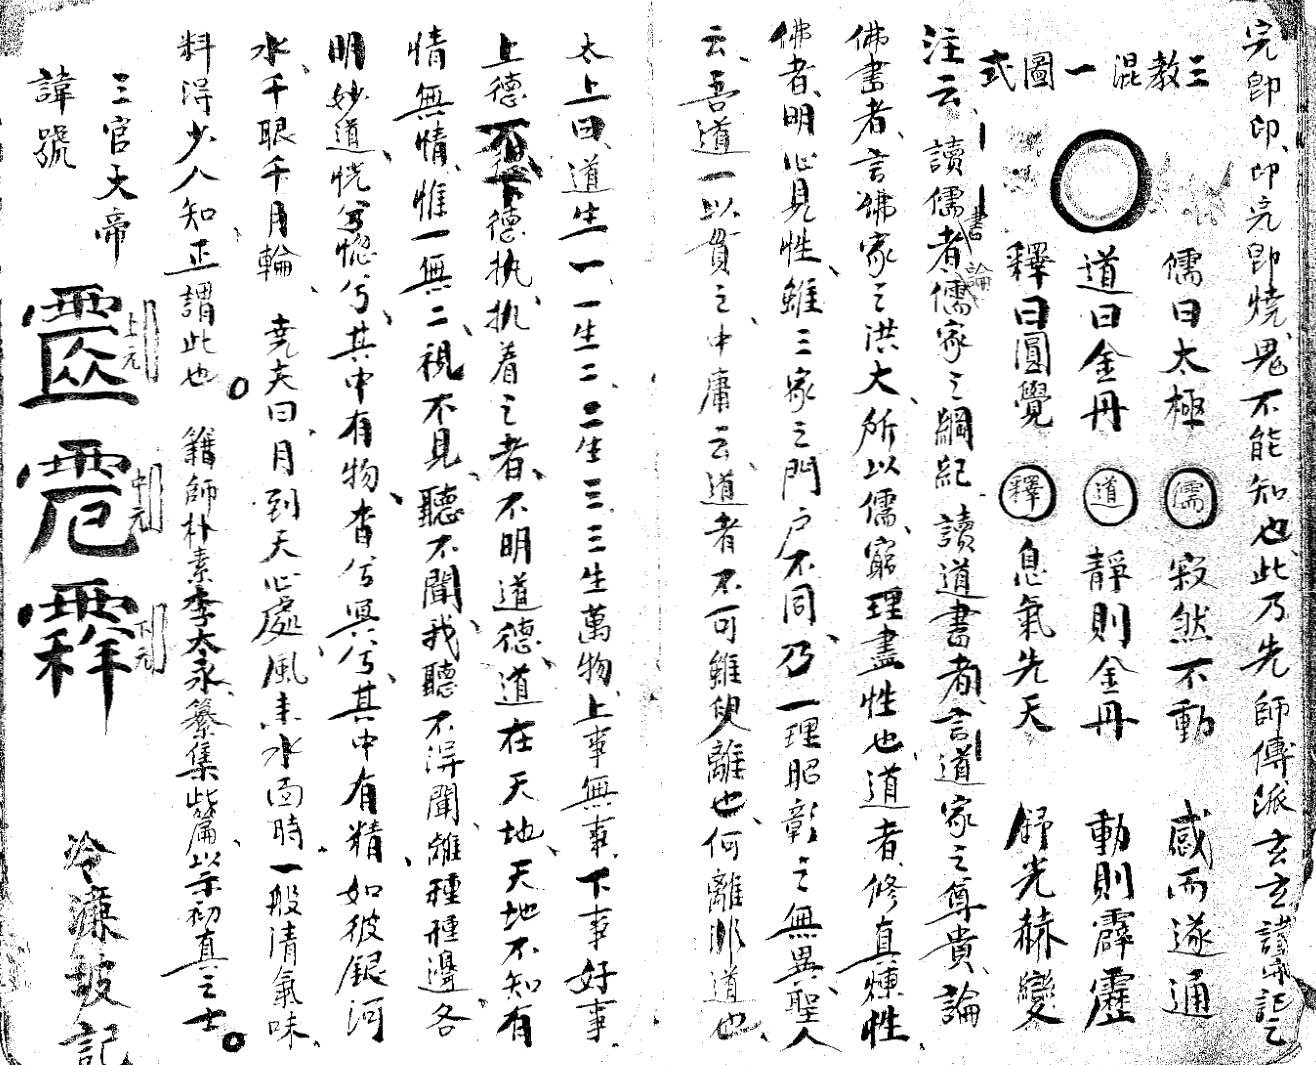 完即印、印完即燒鬼不能知也此乃先師傳派玄玄謹守記之
三教混一圖式
儒曰太極 儒 寂然不動 感而遂通
道曰金丹 道 靜則金丹 動則霹靂
釋曰圓覺 釋 息氣先天 舒光赫變
注云、讀儒書者、論儒家之綱紀、讀道書者、言道家之尊貴、論
佛書者、言佛家之洪大、所以儒、窮理盡性也、道者、修真煉性、
佛者、明心見性、雖三家之門户不同、乃一理昭彰之無異、聖人
云、吾道一以貫之、中庸云、道者不可須臾離也、何離非道也、
太上曰、道生一、一生二、二生三、三生萬物、上事無事、下事好事、
上德不德、下德執、執着之者、不明道德、道在天地、天地不知、有
情無情、惟一無二、視不見、聽不聞、我聽不得聞、雖種種邊各
明妙道、恍兮惚兮、其中有物、杳兮冥兮、其中有精、如彼銀河
水、千眼千月輪、堯夫曰、月到天心處、風來水面時、一般清氣味、
料得少人知、正謂此也。籍師朴素李太永、纂集此篇、以示初真之士。
三官大帝
諱號
上元
中元
下元
冷濂坡記